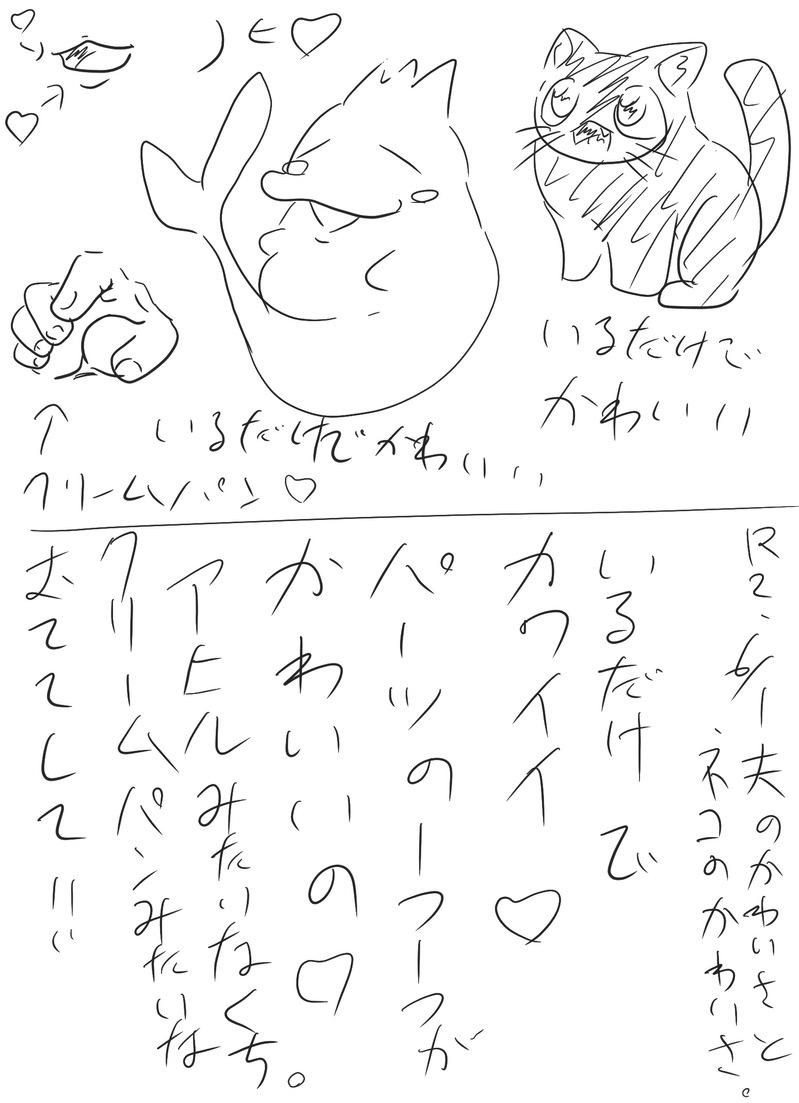 いるだけで
かわいい
いるだけでかわいい
↑
クリームパン♡
R2.6/1 夫のかわいさと
ネコのかわいさ。
いるだけで
カワイイ♡
パーツの一つ一つが
かわいいの♡
アヒルみたいなくち。
クリームパンみたいな
おててして!!